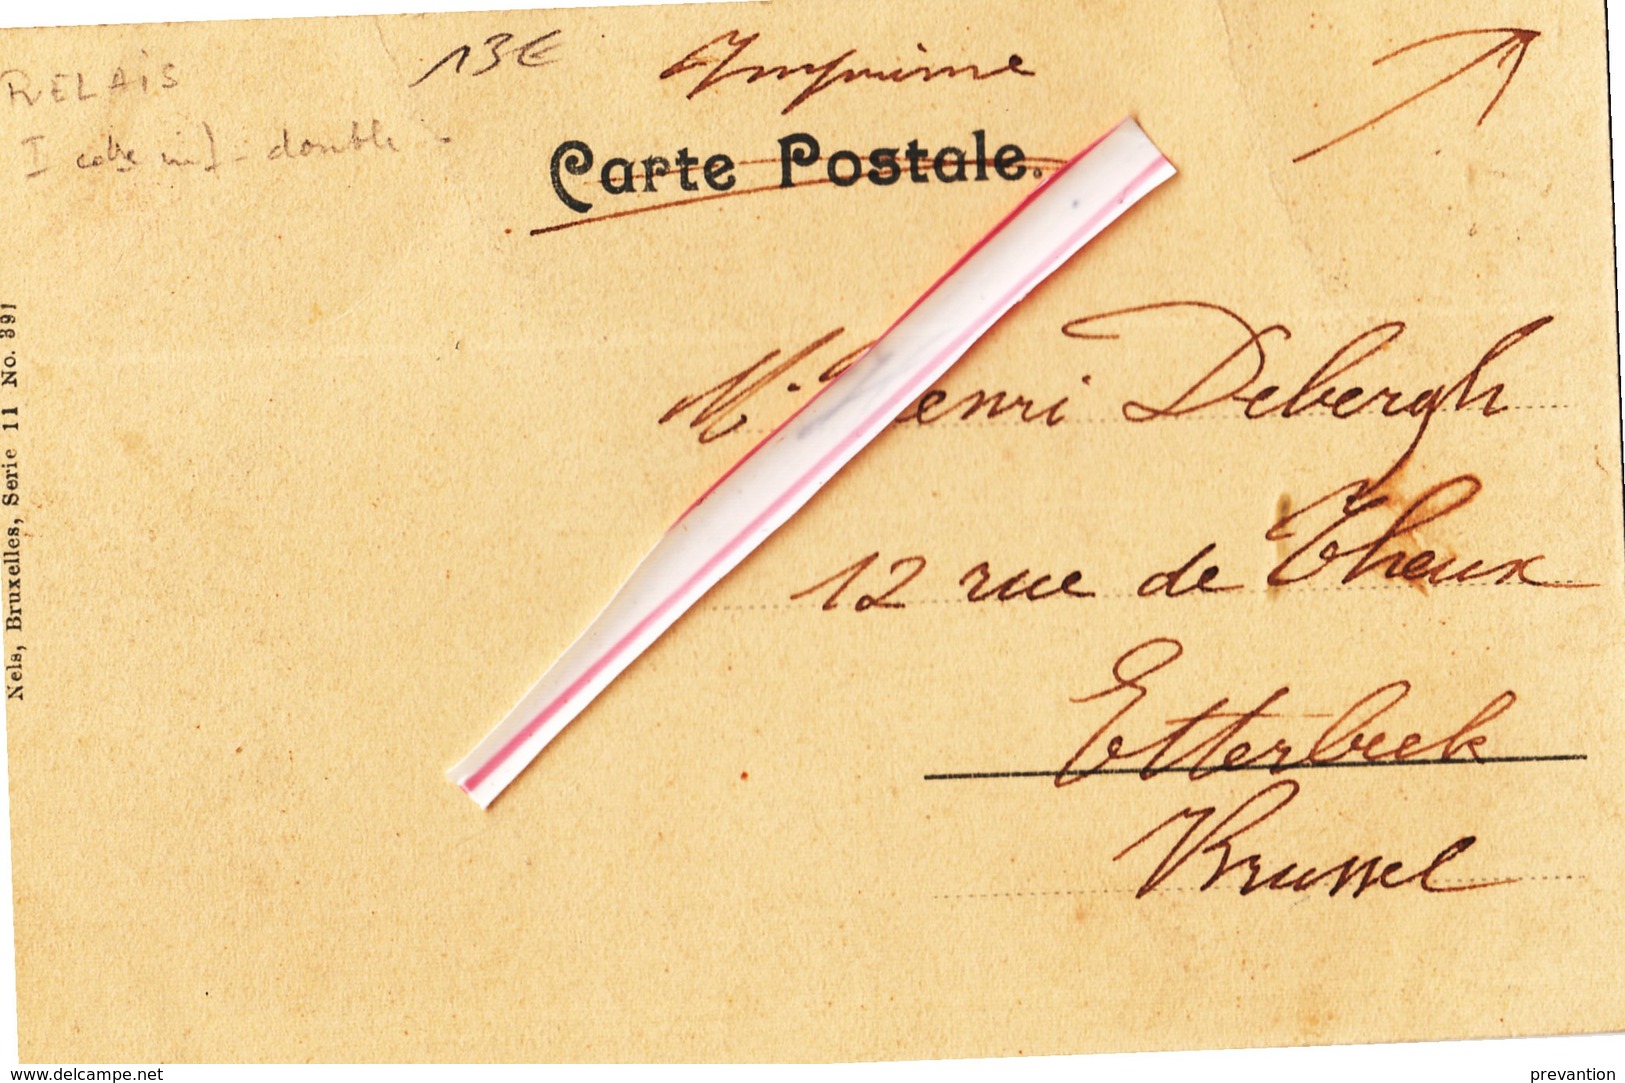 RELAIS
13€
Imprimé
I cote inf - double -
Carte Postale.
Mr. Henri Debergh
12 rue de Theux
Etterbeek
Brussel
Nels, Bruxelles, Serie 11 No. 391
www.delcampe.net
prevantion